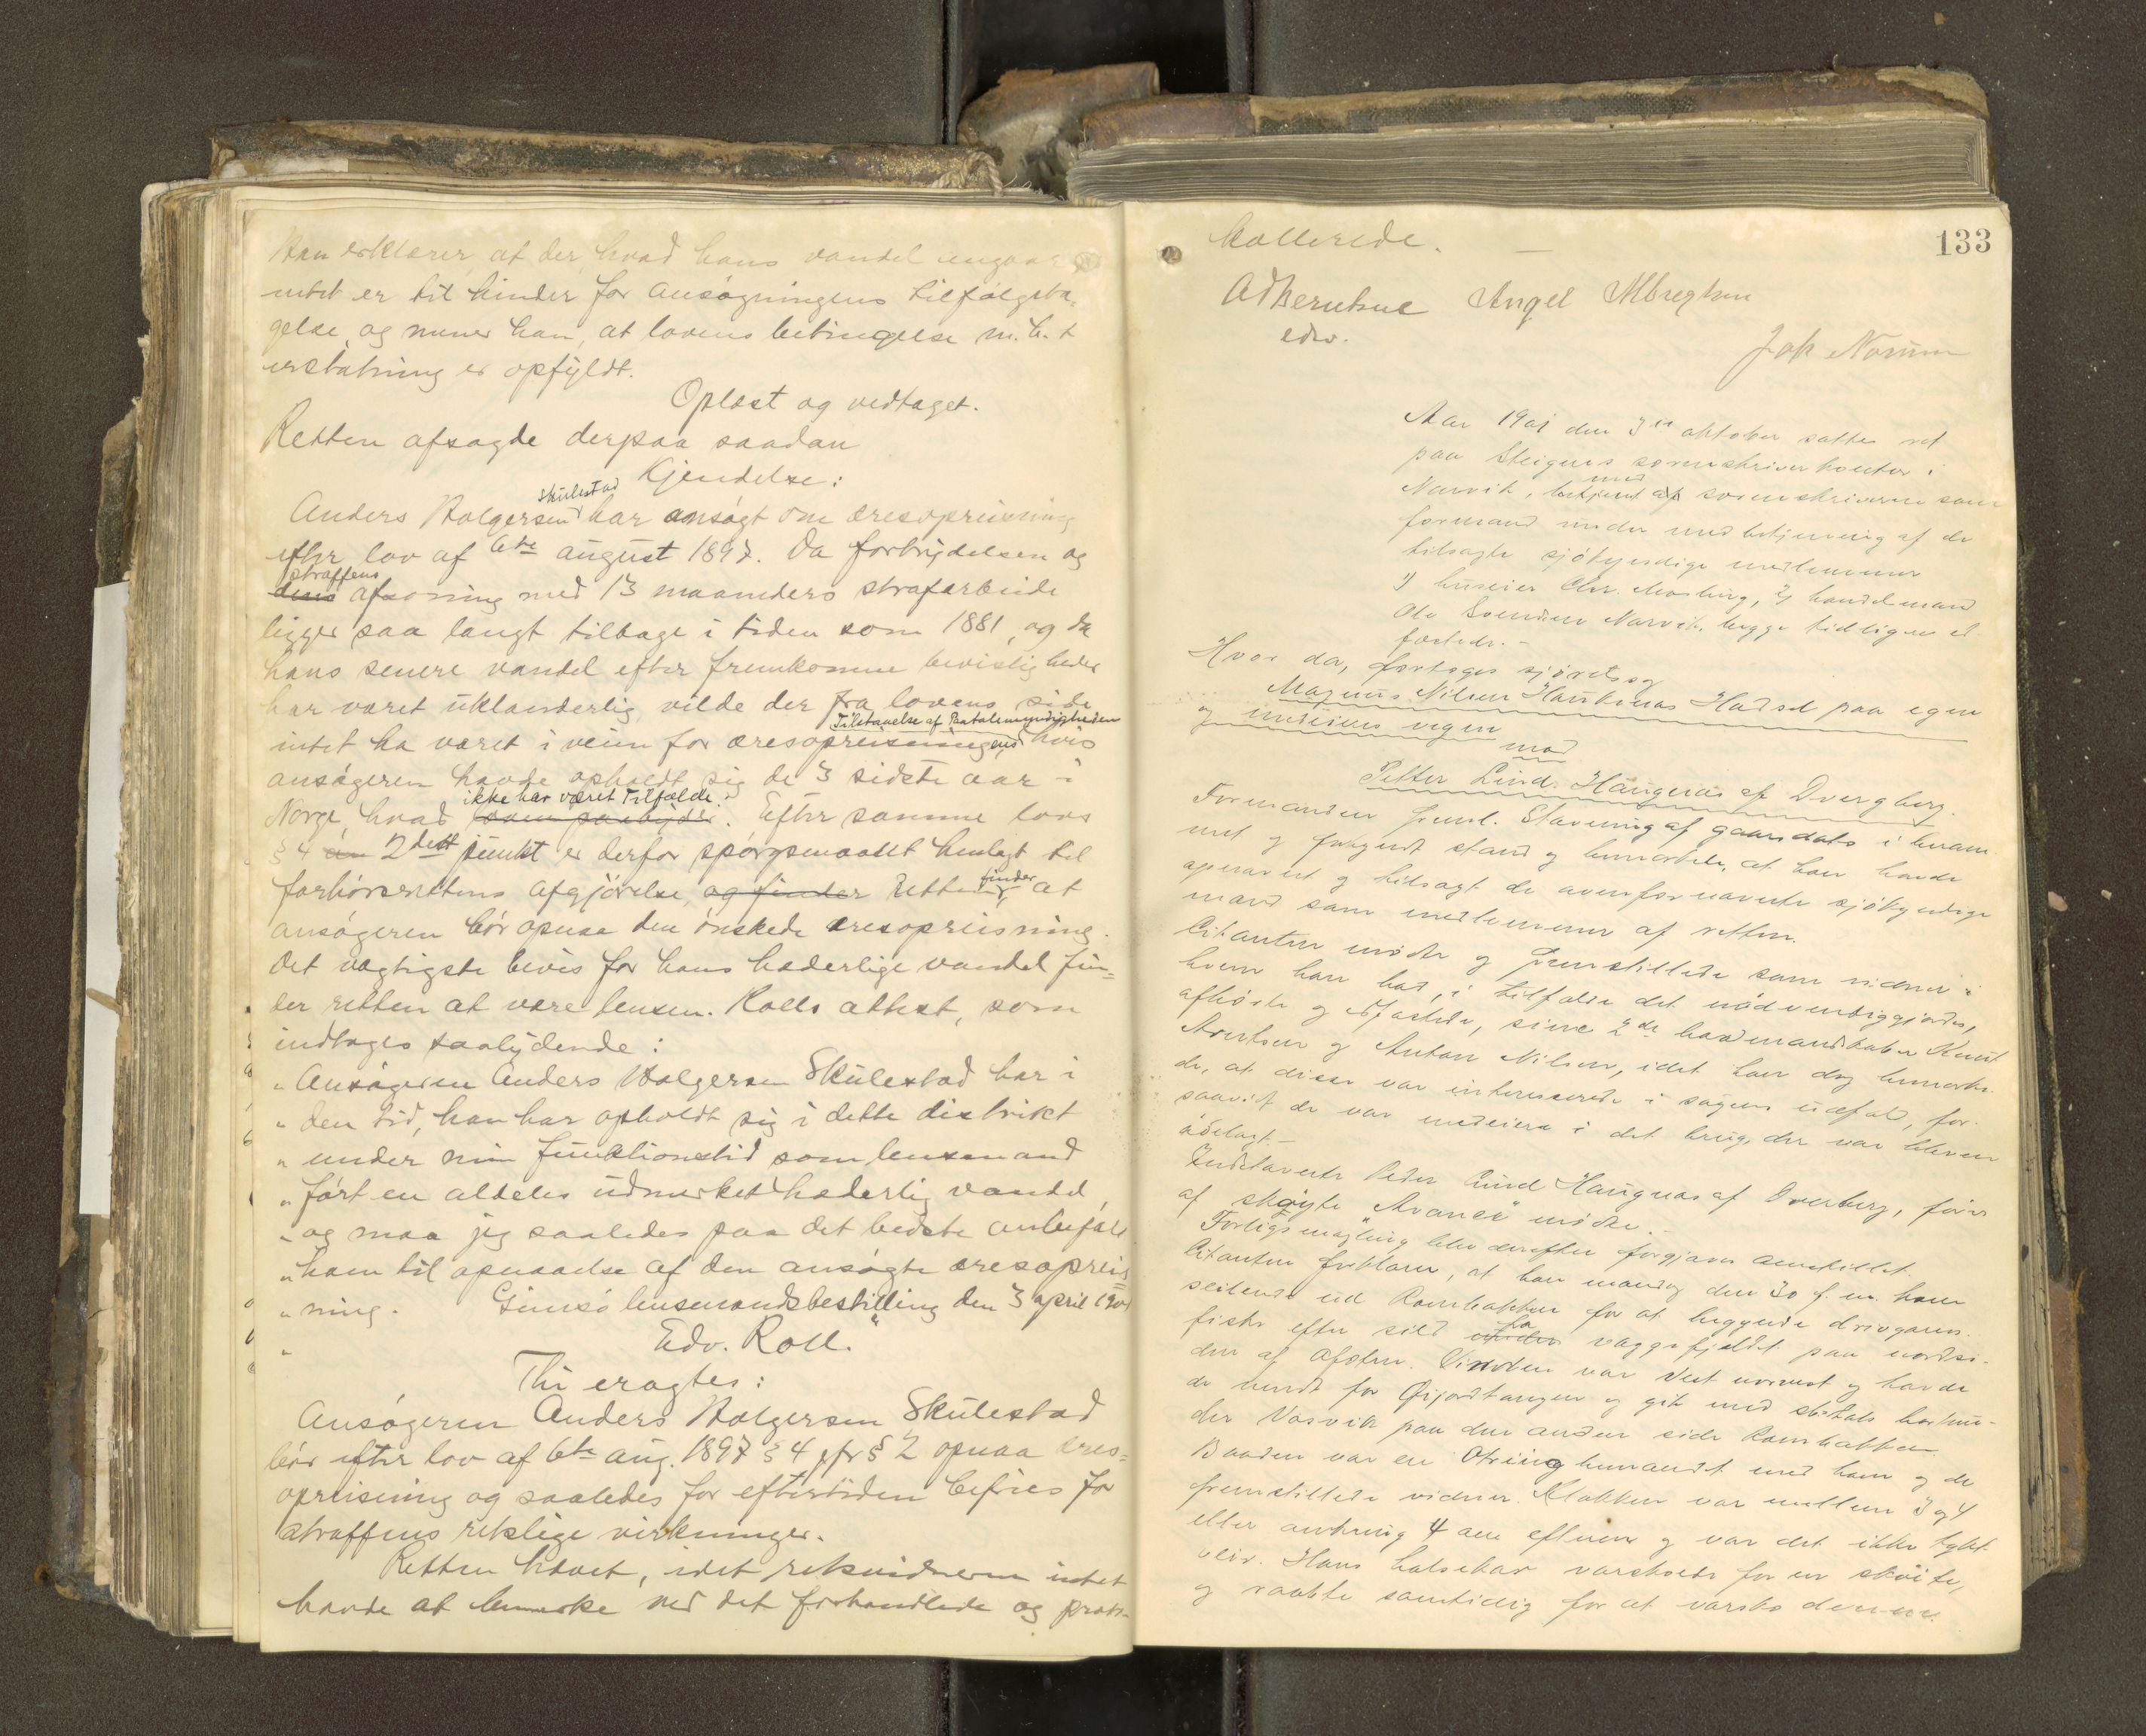 Han erklærer, at der, hvad hans vandel angaar
intet er til hinder for ansøgningens tilfølgeta-
gelse, og mener han, at lovens betingelse m. h. t
erstatning er opfyldt.
Oplæst og vedtaget.
Retten afsagde derpaa saadan
Kjendelse:
Skulestad
Anders Holgersen har ansøgt om æresopreisning
efter lov af 6te august 1897. Da forbrydelsen og
straffens
dens afsoning med 13 maaneders strafarbeide
ligger saa langt tilbage i tiden som 1881, og da
hans senere vandel efter fremkomne bevisligheder
har været uklanderlig vilde der fra lovens side
Tilstaaelse af Paatalemyndigheden
intet ha været i veien for æresopreisningens hvis
ansøgeren havde opholdt sig de 3 sidste aar i
ikke har været Tilfælde.
Norge, hvad . Efter samme lovs
§ 4 2det punkt er derfor spørgsmaalet henlagt til
forhørsrettens afgjørelse, og finder Retten finder, at
ansøgeren bør opnaa den ønskede æresopreisning.
Det vægtigste bevis for hans hæderlige vandel fin-
der retten at være lensm. Rolls attest, som
indtages saalydende:
"Ansøgeren Anders Holgersen Skulestad har i
" den tid, han har opholdt sig i dette distrikt
" under min funktionstid som lensmand
" ført en aldeles udmerket hæderlig vandel,
" og maa jeg saaledes paa det bedste anbefale
" ham til opnaaelse af den ansøgte æresopreis
" ning. Gimsø lensmandsbestilling den 3 april 1901
" Edv. Roll."
Thi eragtes:
Ansøgeren Anders Holgersen Skulestad
bør efter lov af 6te aug. 1897 § 4 jfr § 2 opnaa æres-
opreisning og saaledes for eftertiden befries for
straffens retslige virkninger.
Retten hævet, idet retsvidnerne intet
havde at bemerke ved det forhandlede og proto-
133
kollerede. —
Angel
edv.
Joh Norum
Aar 1901 den 3die oktober sattes ret
paa Steigens sorenskriverkontor i
med
Narvik, betjent af sorenskriveren som
formand under medbetjening af de
tilsagte sjøkyndige medlemmer
1) huseier Chr. Mosling, 2) handelsmand
Ole Svendsen Narvik, begge tidligere ed-
fæstede. —
Hvor da, foretoges sjøretssag
Magnus Nilsen Haukenæs Hadsel paa egne
og medeieres vegne
mod
Petter Lind Haugnæs af Dverberg.
Formanden freml. Stævning af gaarsdato i beram-
met og forkyndt stand og bemærkede, at han havde
opnævnt og tilsagt de ovenfornævnte sjøkyndige
mænd som medlemmer af retten.
Citanten mødte og fremstillede som vidner i
hvem han bad, i tilfælde det nødvendiggjordes,
afhørte og edfæstede, sine 2de baadmandskaber Knut
Arentsen og Anton Nilsen, idet han dog bemærke-
de, at disse var interesserede i sagens udfald, for-
saavidt de var medeiere i det brug, der var bleven
ødelagt. —
Indstævnte Peder Lind Haugnæs af Dverberg, fører
af skøyte "Avance" mødte. —
Forligsmægling blev derefter forgjæves anstillet.
Citanten forklarer, at han mandag den 30 f. m. kom
seilende ud Rambakken for at begynde drivgarns-
fra
fiske efter sild under vaggefjeldet paa nordsi-
den af Ofoten. Vinden var Vest norvest og havde
de vendt for Øijordtangen og gik med skjøts bortun-
der Vasvik paa den anden side Rombakken.
Baaden var en Otring bemandt med ham og de
fremstillede vidner. Klokken var mellem 3 og 4
eller omkring 4 om efterm og var det ikke tykt
veir. Hans halsekar varskoede for en skøite,
og raabte samtidig for at varsko denne.